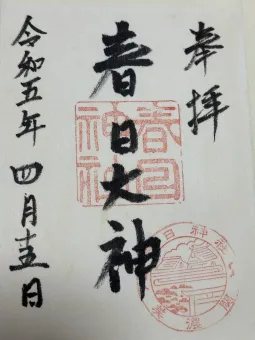 奉拝
春日大神
春日神社
令和五年四月十五日